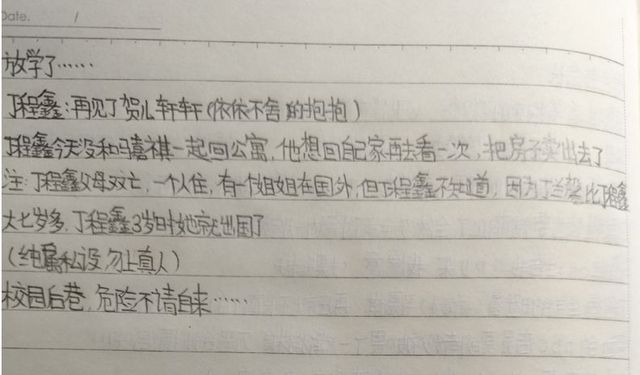 Date. /
放学了……
丁程鑫:再见了贺儿轩轩(依依不舍的抱抱)
丁程鑫今天没和马嘉祺一起回公寓,他想回自己家再去看一次,把房子卖出去了
注:丁程鑫父母双亡,一个人住,有一个姐姐在国外,但丁程鑫不知道,因为丁兰馨比丁程鑫
大七岁多,丁程鑫3岁时她就出国了
(纯属私设,勿上真人)
校园后巷,危险不请自来……